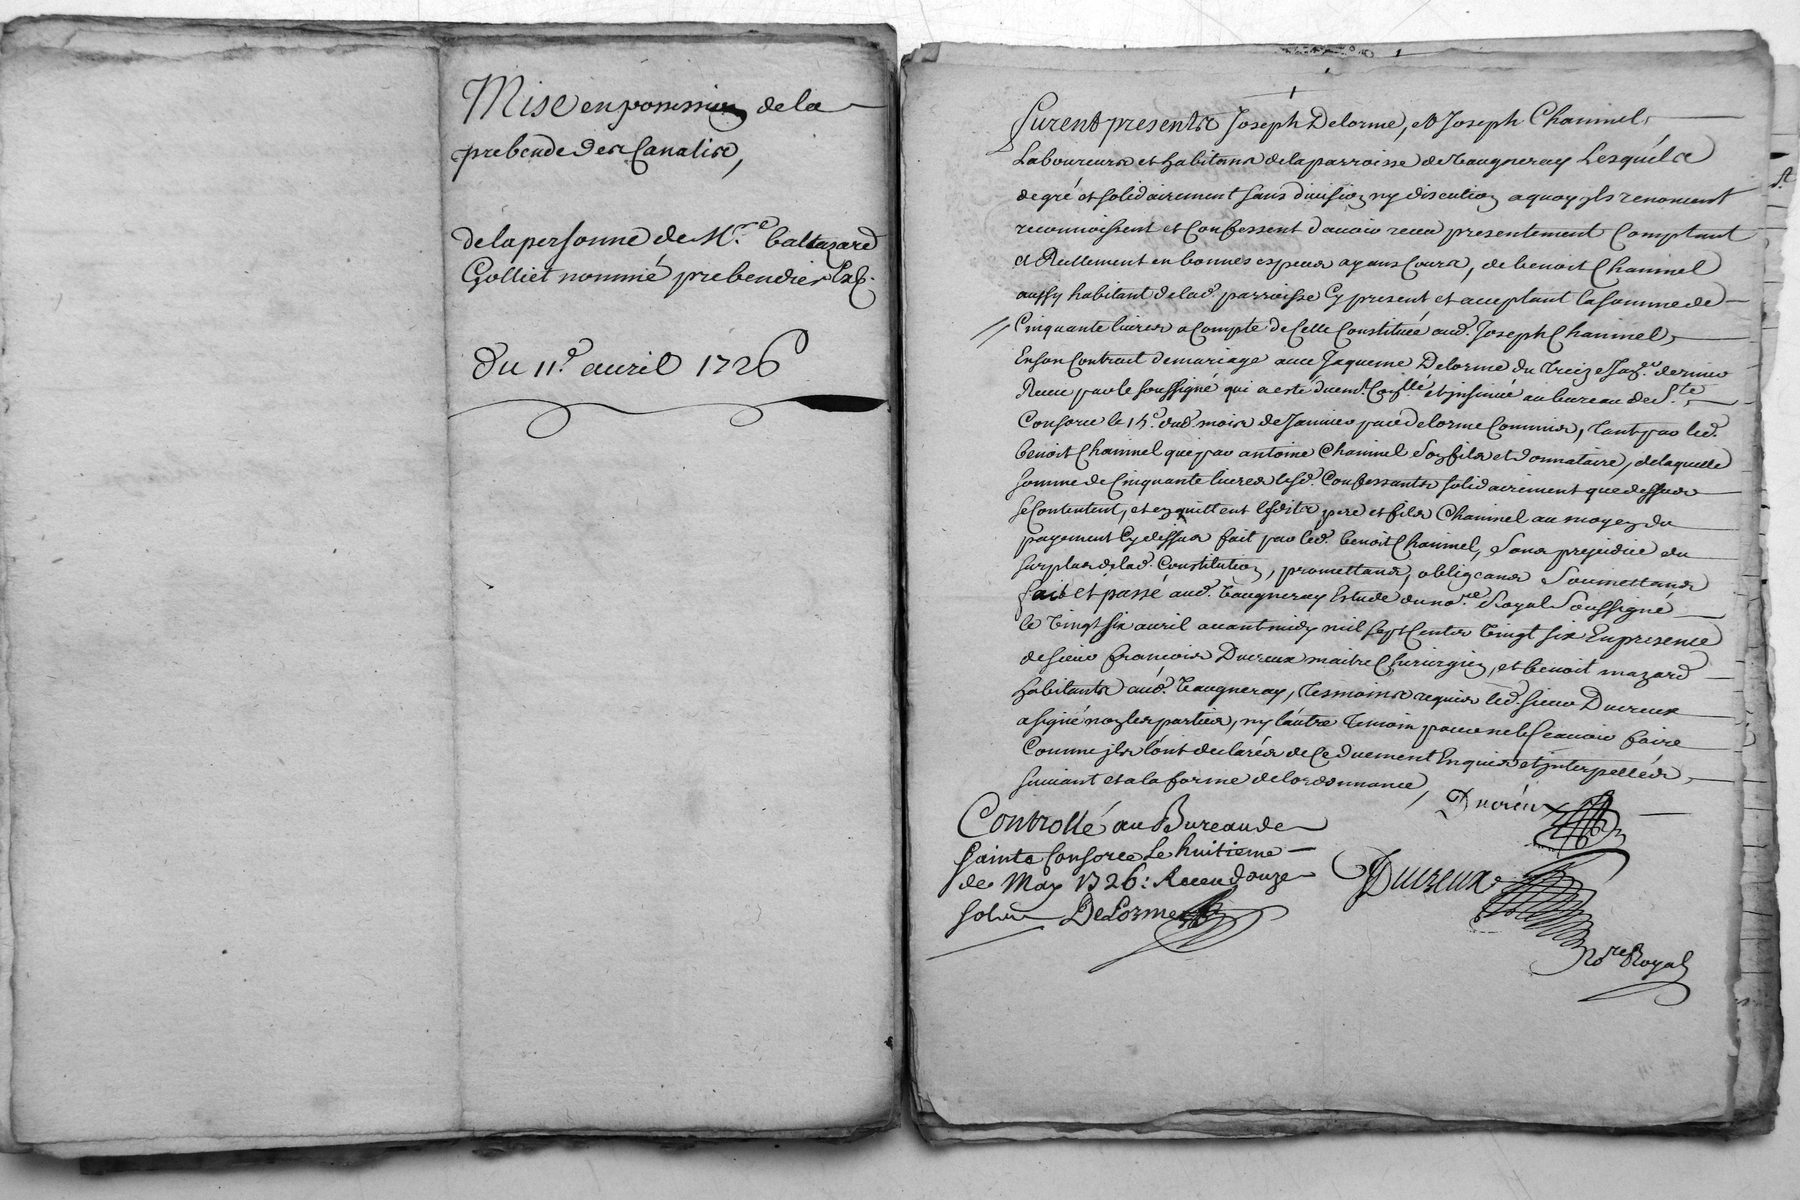 Mise en possession de la
prebende des Canalis,
de la personne de Mre. baltazard
Golliet nommé prebendier
Du 11e. auril 1726
furent presents Joseph Delorme, et Joseph Chaumel,
Laboureurs et habitans de la parroisse de Vaugneray Lesquels
de gré et solidairement sans diuision ny discution a quoy jls renoncent
reconnoissent et Confessent d'auoir receu presentement Comptant
et Reellement en bonnes especes ayans Cours, de benoit Chaumel
aussy habitant de lad. parroisse Cy present et acceptant la somme de
Cinquante liures a Compte de Celle Constituée aud. Joseph Chaumel
En son Contrait de mariage auec Jaqueme Delorme du treize Jaer. dernier
Receu par le soussigné qui a esté duemt. Conllé. et jnsinué au bureau de Ste.
Consorce le 15e. dud. mois de Januier par delorme Commis, tant par led.
benoit Chaumel que par antoine Chaumel son fils et donnataire, de laquelle
somme de Cinquante liures lesd. Confessants solidairement que dessus
se Contentent, et en quittent lesdits pere et fils Chaumel au moyen du
payement Cy dessus fait par led. benoit Chaumel, sans prejudice du
surplus de lad. Constitution, promettans, obligeans Soumettans
fait et passé aud. Vaugneray Estude du nore. Royal Soussigné
le Vingt six auril auant midy mil sept Cents Vingt six En presence
de sieur françois Ducreux maitre Chirurgien, et benoit mazard
habitants aud. Vaugneray, tesmoins requis led. sieur Ducreux
a signé non les parties, ny l'autre temoin pour ne le scauoir faire
Comme jls l'ont declarés de Ce duement Enquis et jnterpellés
suiuant et a la forme de lordonnance,
Ducreux
Controllé au Bureau de
Sainte Consorce Le huitieme
de May 1726: Receu douze
sols DeLorme
Ducreux
Nore Royal